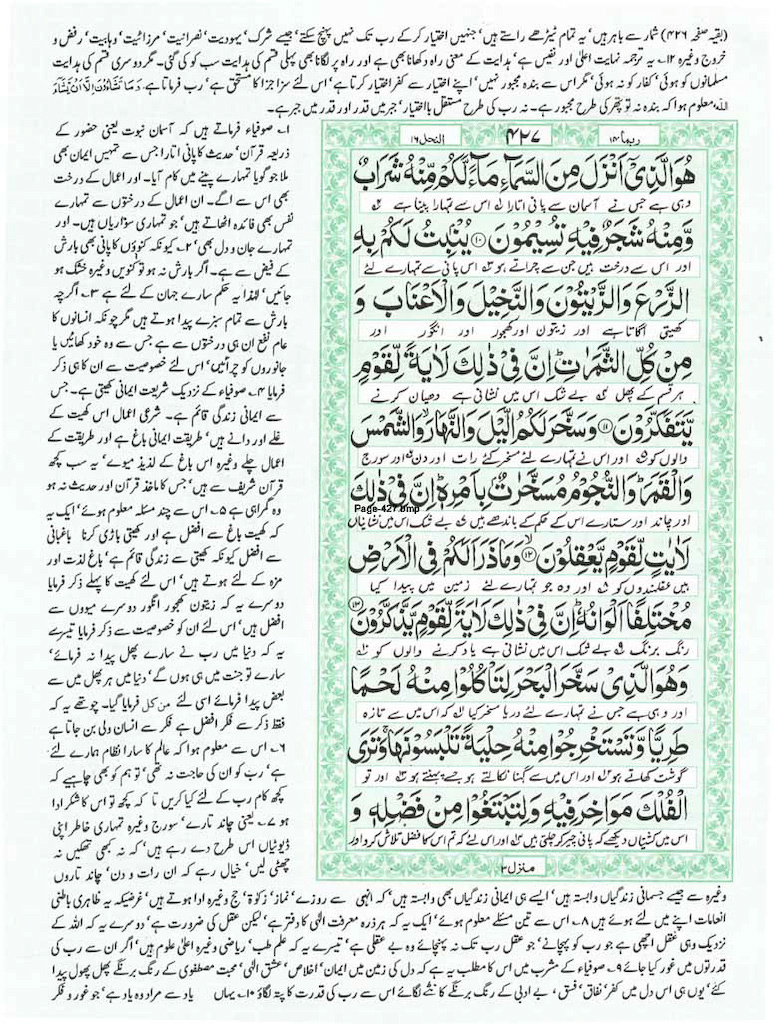 (بقیہ صفحہ ۴۲۶) شمار سے باہر ہیں' یہ تمام ٹیڑھے راستے ہیں' جنہیں اختیار کر کے رب تک نہیں پہنچ سکتے' جیسے شرک' یہودیت' نصرانیت' مرزائیت' وہابیت' رفض و
خروج وغیرہ ۱۲۔ یہ ترجمہ نہایت اعلیٰ اور نفیس ہے' ہدایت کے معنی راہ دکھانا بھی ہے اور راہ پر لگانا بھی پہلی قسم کی ہدایت سب کو کی گئی۔ مگر دوسری قسم کی ہدایت
مسلمانوں کو ہوئی' کفار کو نہ ہوئی' مگر اس سے بندہ مجبور نہیں' اپنے اختیار سے کفر اختیار کرتا ہے' اس لئے سزا جزا کا مستحق ہے' رب فرماتا ہے وَمَا تَشَآءُوْنَ اِلَّآ اَنْ يَّشَآءَ
اللہ' معلوم ہوا کہ بندہ نہ تو پتھر کی طرح مجبور ہے۔ نہ رب کی طرح مستقل با اختیار' جبر میں قدر اور قدر میں جبر ہے۔
ربما ۱۴
۴۲۷
النحل ۱۶
هُوَ الَّذِيْٓ اَنْزَلَ مِنَ السَّمَآءِ مَآءً لَّكُمْ مِّنْهُ شَرَابٌ
وہی ہے جس نے آسمان سے پانی اتارا اس سے تمہارا پینا ہے
وَّمِنْهُ شَجَرٌ فِيْهِ تُسِيْمُوْنَ ۝۱۰ يُنْۢبِتُ لَكُمْ بِهِ
اور اس سے درخت ہیں جن سے چراتے ہو اس پانی سے تمہارے لئے
الزَّرْعَ وَالزَّيْتُوْنَ وَالنَّخِيْلَ وَالْاَعْنَابَ وَ
کھیتی اگاتا ہے اور زیتون اور کھجور اور انگور اور
مِنْ كُلِّ الثَّمَرٰتِ ۭ اِنَّ فِيْ ذٰلِكَ لَاٰيَةً لِّقَوْمٍ
ہر قسم کے پھل بے شک اس میں نشانی ہے دھیان کرنے
يَّتَفَكَّرُوْنَ ۝۱۱ وَسَخَّرَ لَكُمُ الَّيْلَ وَالنَّهَارَ ۙ وَالشَّمْسَ
والوں کو اور اس نے تمہارے لئے مسخر کئے رات اور دن اور سورج
وَالْقَمَرَ ۭ وَالنُّجُوْمُ مُسَخَّرٰتٌۢ بِاَمْرِهٖ ۭ اِنَّ فِيْ ذٰلِكَ
Page-427.bmp
اور چاند اور ستارے اس کے حکم کے باندھے ہیں بے شک اس میں نشانیاں
لَاٰيٰتٍ لِّقَوْمٍ يَّعْقِلُوْنَ ۝۱۲ وَمَا ذَرَاَ لَكُمْ فِي الْاَرْضِ
ہیں عقلمندوں کو اور وہ جو تمہارے لئے زمین میں پیدا کیا
مُخْتَلِفًا اَلْوَانُهٗ ۭ اِنَّ فِيْ ذٰلِكَ لَاٰيَةً لِّقَوْمٍ يَّذَّكَّرُوْنَ ۝۱۳
رنگ برنگ بے شک اس میں نشانی ہے یاد کرنے والوں کو
وَهُوَ الَّذِيْ سَخَّرَ الْبَحْرَ لِتَاْكُلُوْا مِنْهُ لَحْمًا
اور وہی ہے جس نے تمہارے لئے دریا مسخر کیا کہ اس میں سے تازہ
طَرِيًّا وَّتَسْتَخْرِجُوْا مِنْهُ حِلْيَةً تَلْبَسُوْنَهَا ۚ وَتَرَى
گوشت کھاتے ہو اور اس میں سے گہنا نکالتے ہو جسے پہنتے ہو اور تو
الْفُلْكَ مَوَاخِرَ فِيْهِ وَلِتَبْتَغُوْا مِنْ فَضْلِهٖ وَ
اس میں کشتیاں دیکھے کہ پانی چیر کر چلتی ہیں اور اس لئے کہ تم اس کا فضل تلاش کرو اور
منزل ۳
۱۔ صوفیاء فرماتے ہیں کہ آسمان نبوت یعنی حضور کے
ذریعہ قرآن' حدیث کا پانی اتارا جس سے تمہیں ایمان بھی
ملا جو گویا تمہارے پینے میں کام آیا۔ اور اعمال کے درخت
بھی اس سے اگے۔ ان اعمال کے درختوں سے تمہارے
نفس بھی فائدہ اٹھاتے ہیں' جو تمہاری سواریاں ہیں۔ اور
تمہارے جان و دل بھی' ۲۔ کیونکہ کنوؤں کا پانی بھی بارش
کے فیض سے ہے۔ اگر بارش نہ ہو تو کنویں وغیرہ خشک ہو
جائیں' لہٰذا یہ حکم سارے جہان کے لئے ہے ۳۔ اگرچہ
بارش سے تمام سبزے پیدا ہوتے ہیں مگر چونکہ انسانوں کا
عام نفع ان ہی درختوں سے ہے جس سے وہ خود کھائیں یا
جانوروں کو چرائیں' اس لئے خصوصیت سے ان کا ہی ذکر
فرمایا ۴۔ صوفیاء کے نزدیک شریعت ایمانی کھیتی ہے۔ جس
سے ایمانی زندگی قائم ہے۔ شرعی اعمال اس کھیت کے
غلے اور دانے ہیں' طریقت ایمانی باغ ہے اور طریقت کے
اعمال چلے وغیرہ اس باغ کے لذیذ میوے' یہ سب کچھ
قرآن شریف سے ہیں' جس کا ماخذ قرآن اور حدیث نہ ہو
وہ گمراہی ہے ۵۔ اس سے چند مسئلہ معلوم ہوئے' ایک یہ
کہ کھیت باغ سے افضل ہے اور کھیتی باڑی کرنا باغبانی
سے افضل کیونکہ کھیتی سے زندگی قائم ہے' باغ لذت اور
مزہ کے لئے ہوتے ہیں' اس لئے کھیت کا پہلے ذکر فرمایا
دوسرے یہ کہ زیتون کھجور انگور دوسرے میووں سے
افضل ہیں' اس لئے ان کو خصوصیت سے ذکر فرمایا تیسرے
یہ کہ دنیا میں رب نے سارے پھل پیدا نہ فرمائے'
سارے تو جنت میں ہی ہوں گے' دنیا میں ہر پھل میں سے
بعض پیدا فرمائے اسی لئے من کل فرمایا گیا۔ چوتھے یہ کہ
فقط ذکر سے فکر افضل ہے فکر سے انسان ولی بن جاتا ہے
۶۔ اس سے معلوم ہوا کہ عالم کا سارا نظام ہمارے لئے
ہے' رب کو ان کی حاجت نہ تھی' تو ہم کو بھی چاہیے کہ
کچھ کام رب کے لئے کیا کریں تا کہ کچھ تو اس کا شکر ادا
ہو ۷۔ یعنی چاند تارے' سورج وغیرہ تمہاری خاطر اپنی
ڈیوٹیاں اس طرح دے رہے ہیں' کہ نہ کبھی تھکیں نہ
چھٹی لیں' خیال رہے کہ ان رات و دن' چاند تاروں
وغیرہ سے جیسے جسمانی زندگیاں وابستہ ہیں' ایسے ہی ایمانی زندگیاں بھی وابستہ ہیں' کہ انہی سے روزے' نماز' زکوٰۃ' حج وغیرہ ادا ہوتے ہیں' غرضیکہ یہ ظاہری باطنی
انعامات اپنے میں لئے ہوئے ہیں ۸۔ اس سے تین مسئلے معلوم ہوئے' ایک یہ کہ ہر ذرہ معرفت الٰہی کا دفتر ہے' لیکن عقل کی ضرورت ہے' دوسرے یہ کہ اللہ کے
نزدیک وہی عقل اچھی ہے جو رب کو پہچانے' جو عقل رب تک نہ پہنچائے وہ بے عقلی ہے' تیسرے یہ کہ علم طب' ریاضی وغیرہ اعلیٰ علوم ہیں' اگر ان سے رب کی
قدرتوں میں غور کیا جائے ۹۔ صوفیاء کے مشرب میں اس کا مطلب یہ ہے کہ دل کی زمین میں ایمان' اخلاص' عشق الٰہی' محبت مصطفوی کے رنگ برنگے پھل پھول پیدا
کئے' یوں ہی اس دل میں کفر' نفاق' فسق، بے ادبی کے رنگ برنگے کانٹے لگائے اس سے رب کی قدرت کا پتہ لگاؤ ۱۰۔ یہاں یاد سے مراد وہ یاد ہے' جو غور و فکر